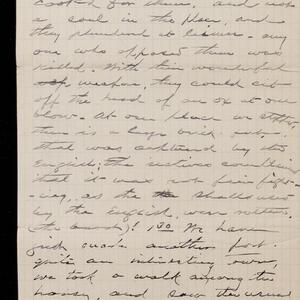 cooked for them, and not
a soul in the place, and
they plundered at leisure. Any
one who opposed them was
killed. With this wonderful
weapon, they could cut
off the head of an ox at one
blow. At one place in
there is a large brick
that was captured by the
English, the natives considering
that it was not fair
as the shells used
by the English, were rotten
We have
just made another fort.
quite an interesting
we took a walk among the
houses, and saw the